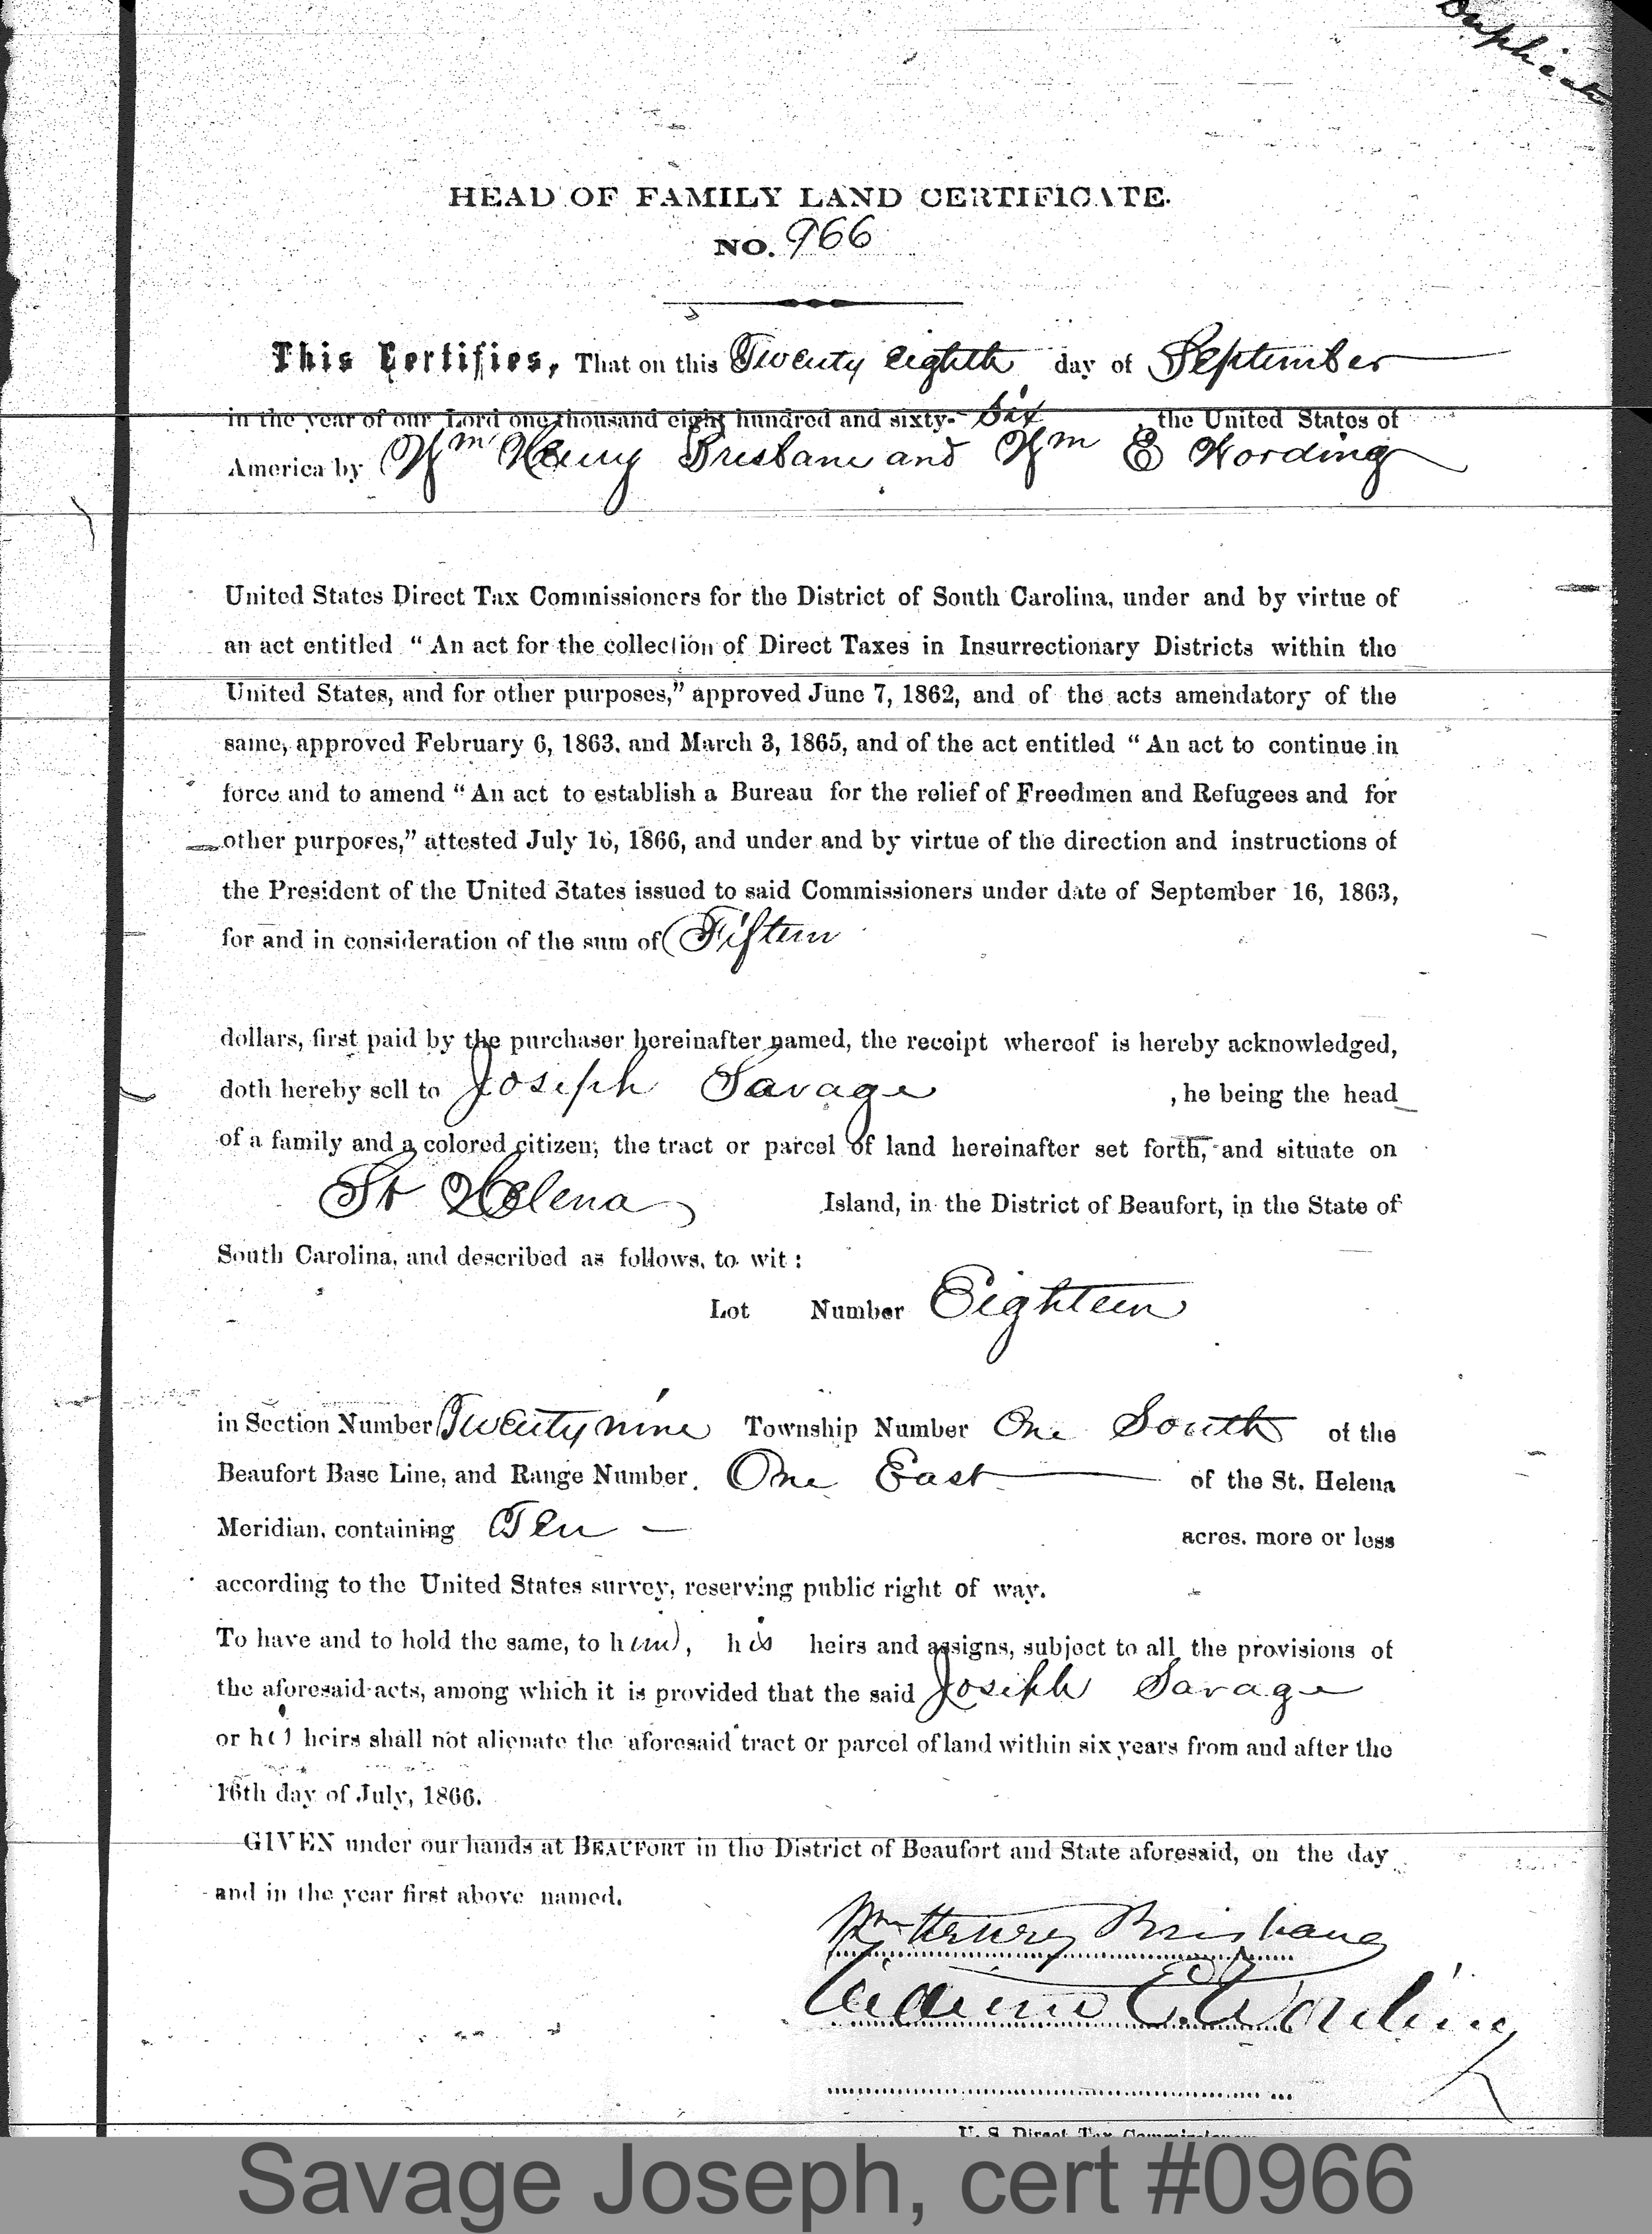 Duplicate
HEAD OF FAMILY LAND CERTIFICATE.
NO. 966
This Certifies, That on this Twenty eighth day of September
in the year of our Lord one thousand eight hundred and sixty-six, the United States of
America by Wm Henry Brisbane and Wm E Wording
United States Direct Tax Commissioners for the District of South Carolina, under and by virtue of
an act entitled “An act for the collection of Direct Taxes in Insurrectionary Districts within the
United States, and for other purposes,” approved June 7, 1862, and of the acts amendatory of the
same, approved February 6, 1863, and March 3, 1865, and of the act entitled “An act to continue in
force and to amend “An act to establish a Bureau for the relief of Freedmen and Refugees and for
other purposes,” attested July 16, 1866, and under and by virtue of the direction and instructions of
the President of the United States issued to said Commissioners under date of September 16, 1863,
for and in consideration of the sum of Fifteen
dollars, first paid by the purchaser hereinafter named, the receipt whereof is hereby acknowledged,
doth hereby sell to Joseph Savage , he being the head
of a family and a colored citizen; the tract or parcel of land hereinafter set forth, and situate on
St Helena Island, in the District of Beaufort, in the State of
South Carolina, and described as follows, to wit:
Lot Number Eighteen
in Section Number Twenty nine Township Number One South of the
Beaufort Base Line, and Range Number. One East of the St. Helena
Meridian, containing Ten — acres, more or less
according to the United States survey, reserving public right of way.
To have and to hold the same, to him, his heirs and assigns, subject to all the provisions of
the aforesaid acts, among which it is provided that the said Joseph Savage
or his heirs shall not alienate the aforesaid tract or parcel of land within six years from and after the
16th day of July, 1866.
GIVEN under our hands at BEAUFORT in the District of Beaufort and State aforesaid, on the day
and in the year first above named.
Wm Henry Brisbane
William E. Wording
U. S. Direct Tax Commissioners
Savage Joseph, cert #0966